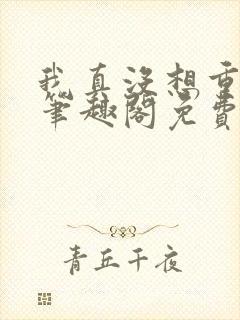 我真没想重
笔趣阁免费
青丘千夜